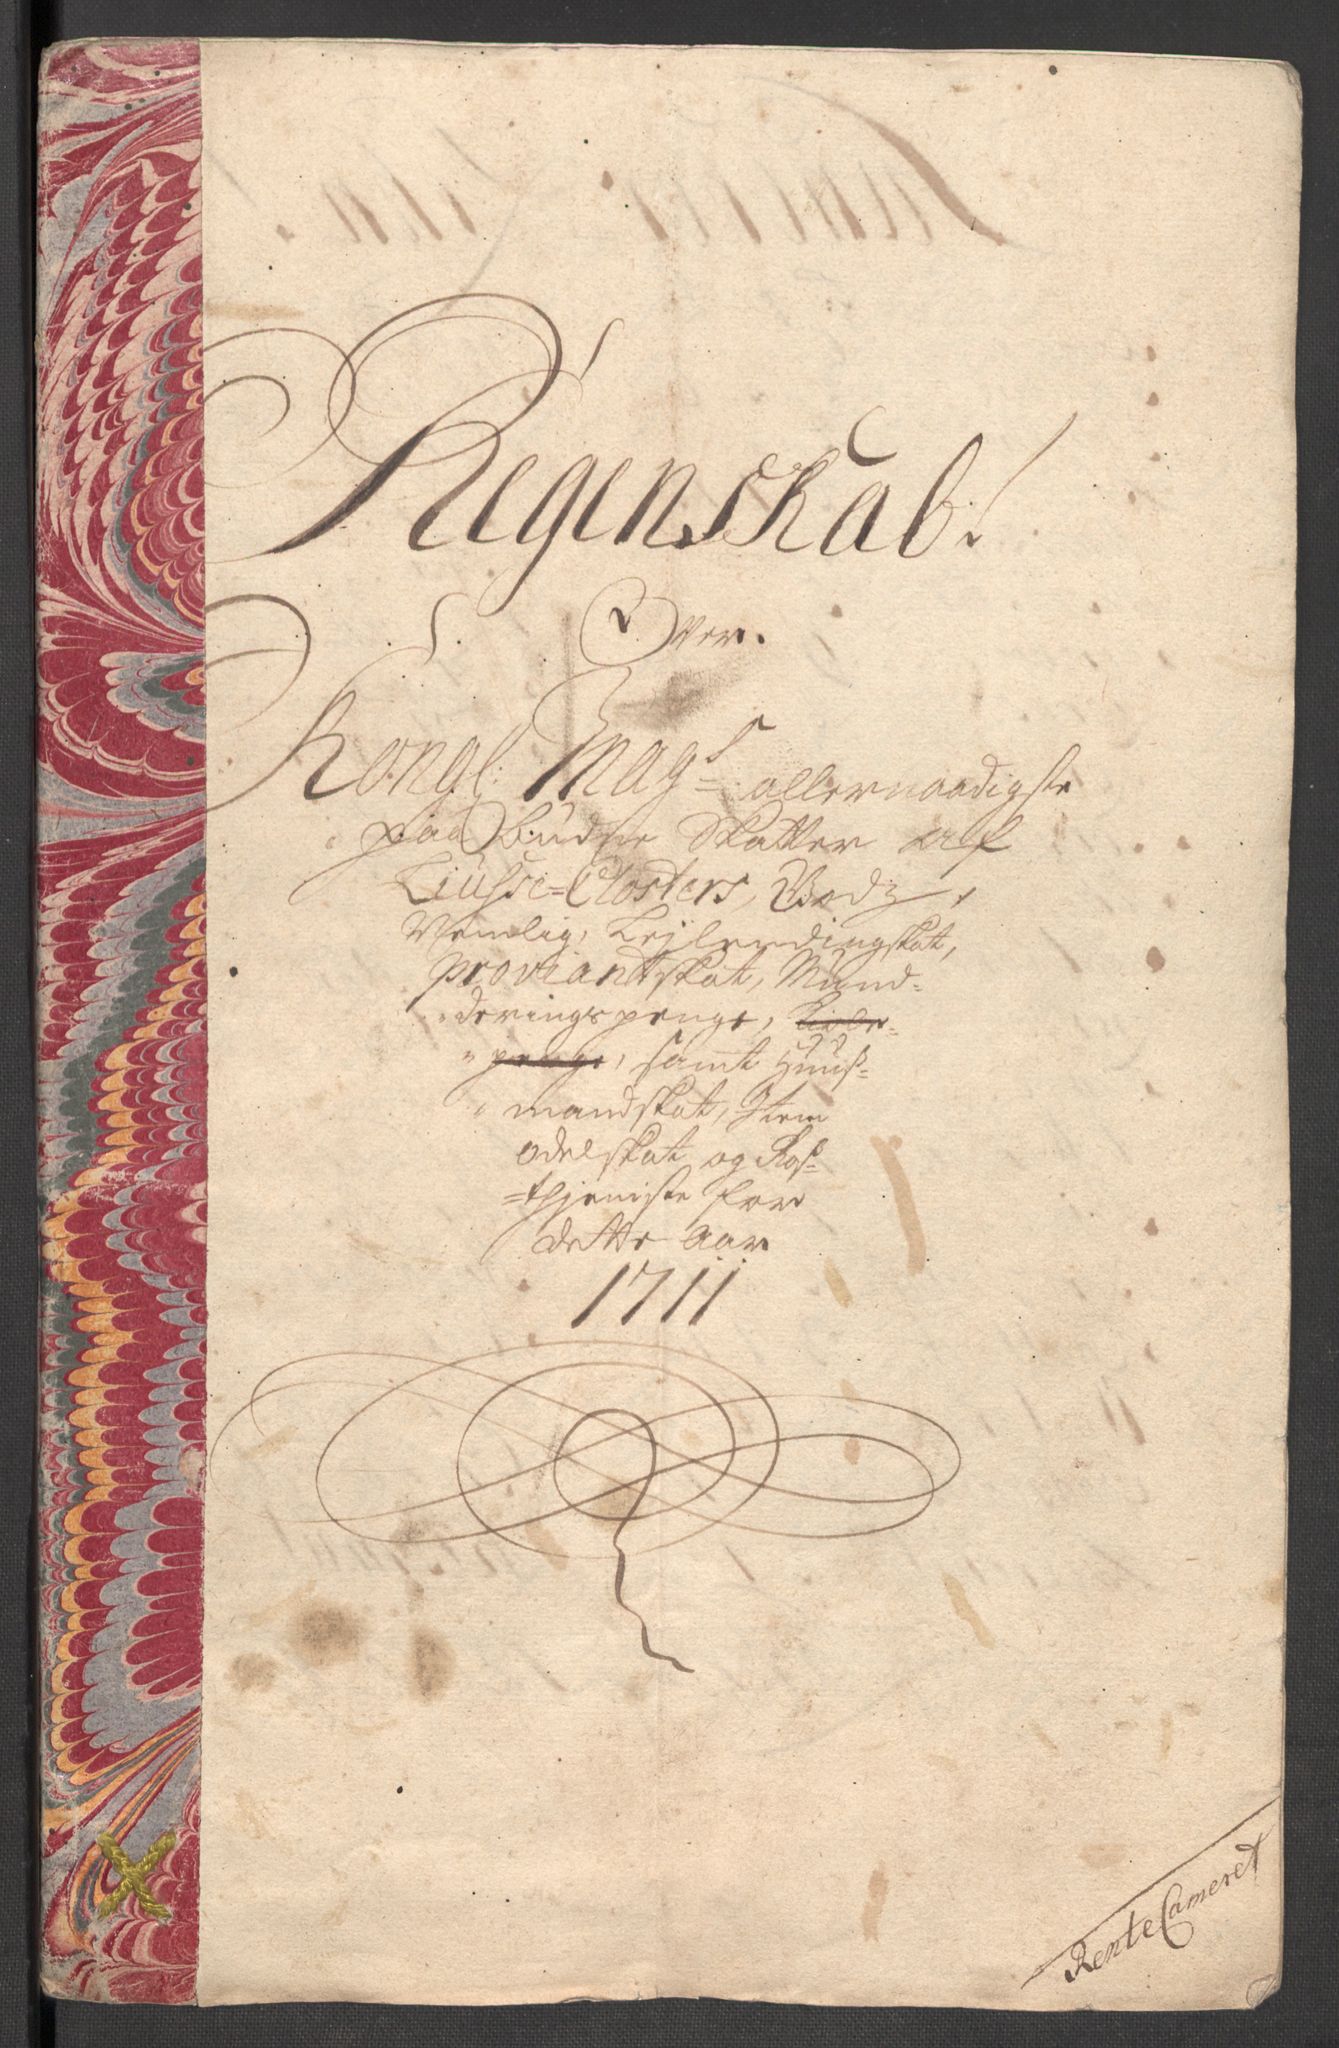 Regenskab
Over
Kongl: Mayts allernaadigste
paabudne Skatter af
Liusse-Closters Godz,
Nemlig, Lejlendingskat,
proviantskat, Mund-
deringspenge,
penge, samt Huus-
mandskat, Item
odelskat og Ros-
thjeniste for
dette Aar
1711
RenteCameret